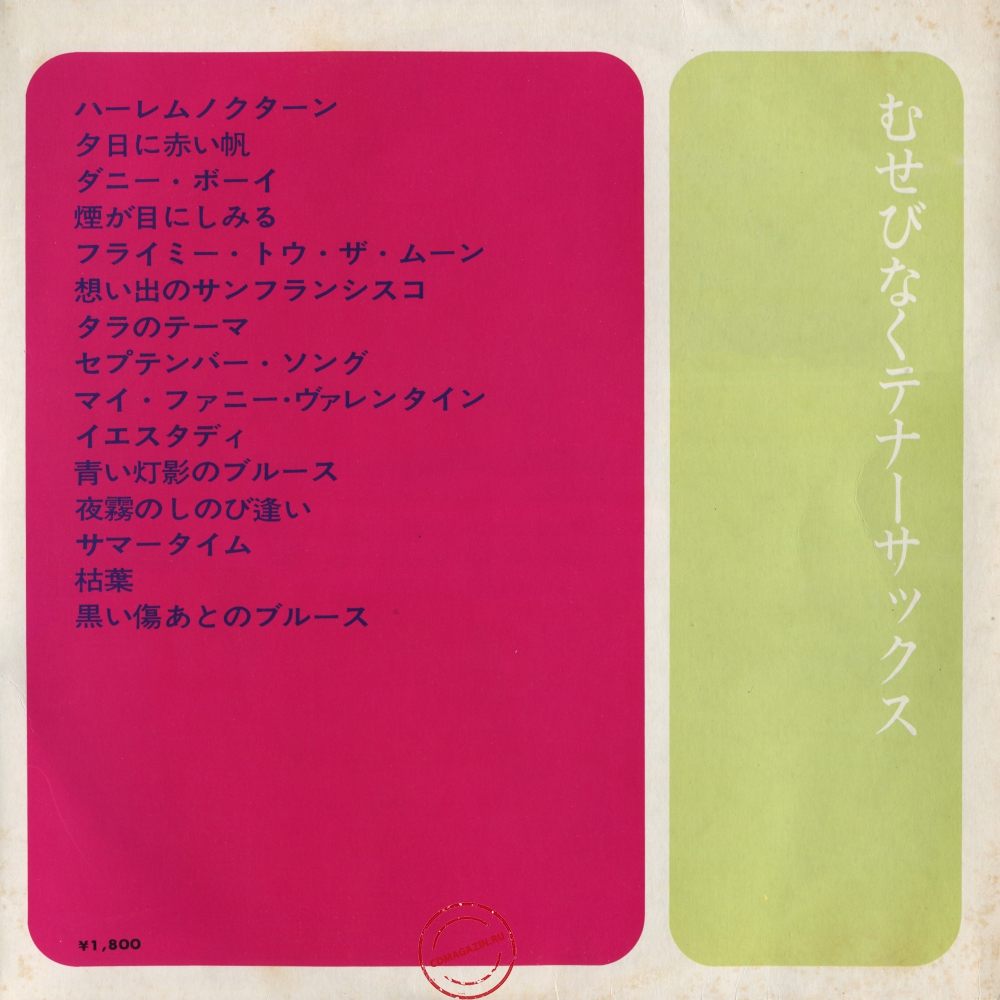 ハーレムノクターン
夕日に赤い帆
ダニー・ボーイ
煙が目にしみる
フライミー・トウ・ザ・ムーン
想い出のサンフランシスコ
タラのテーマ
セプテンバー・ソング
マイ・ファニー・ヴァレンタイン
イエスタディ
青い灯影のブルース
夜霧のしのび逢い
サマータイム
枯葉
黒い傷あとのブルース
¥1,800
むせびなくテナーサックス
CDMAGAZIN.RU